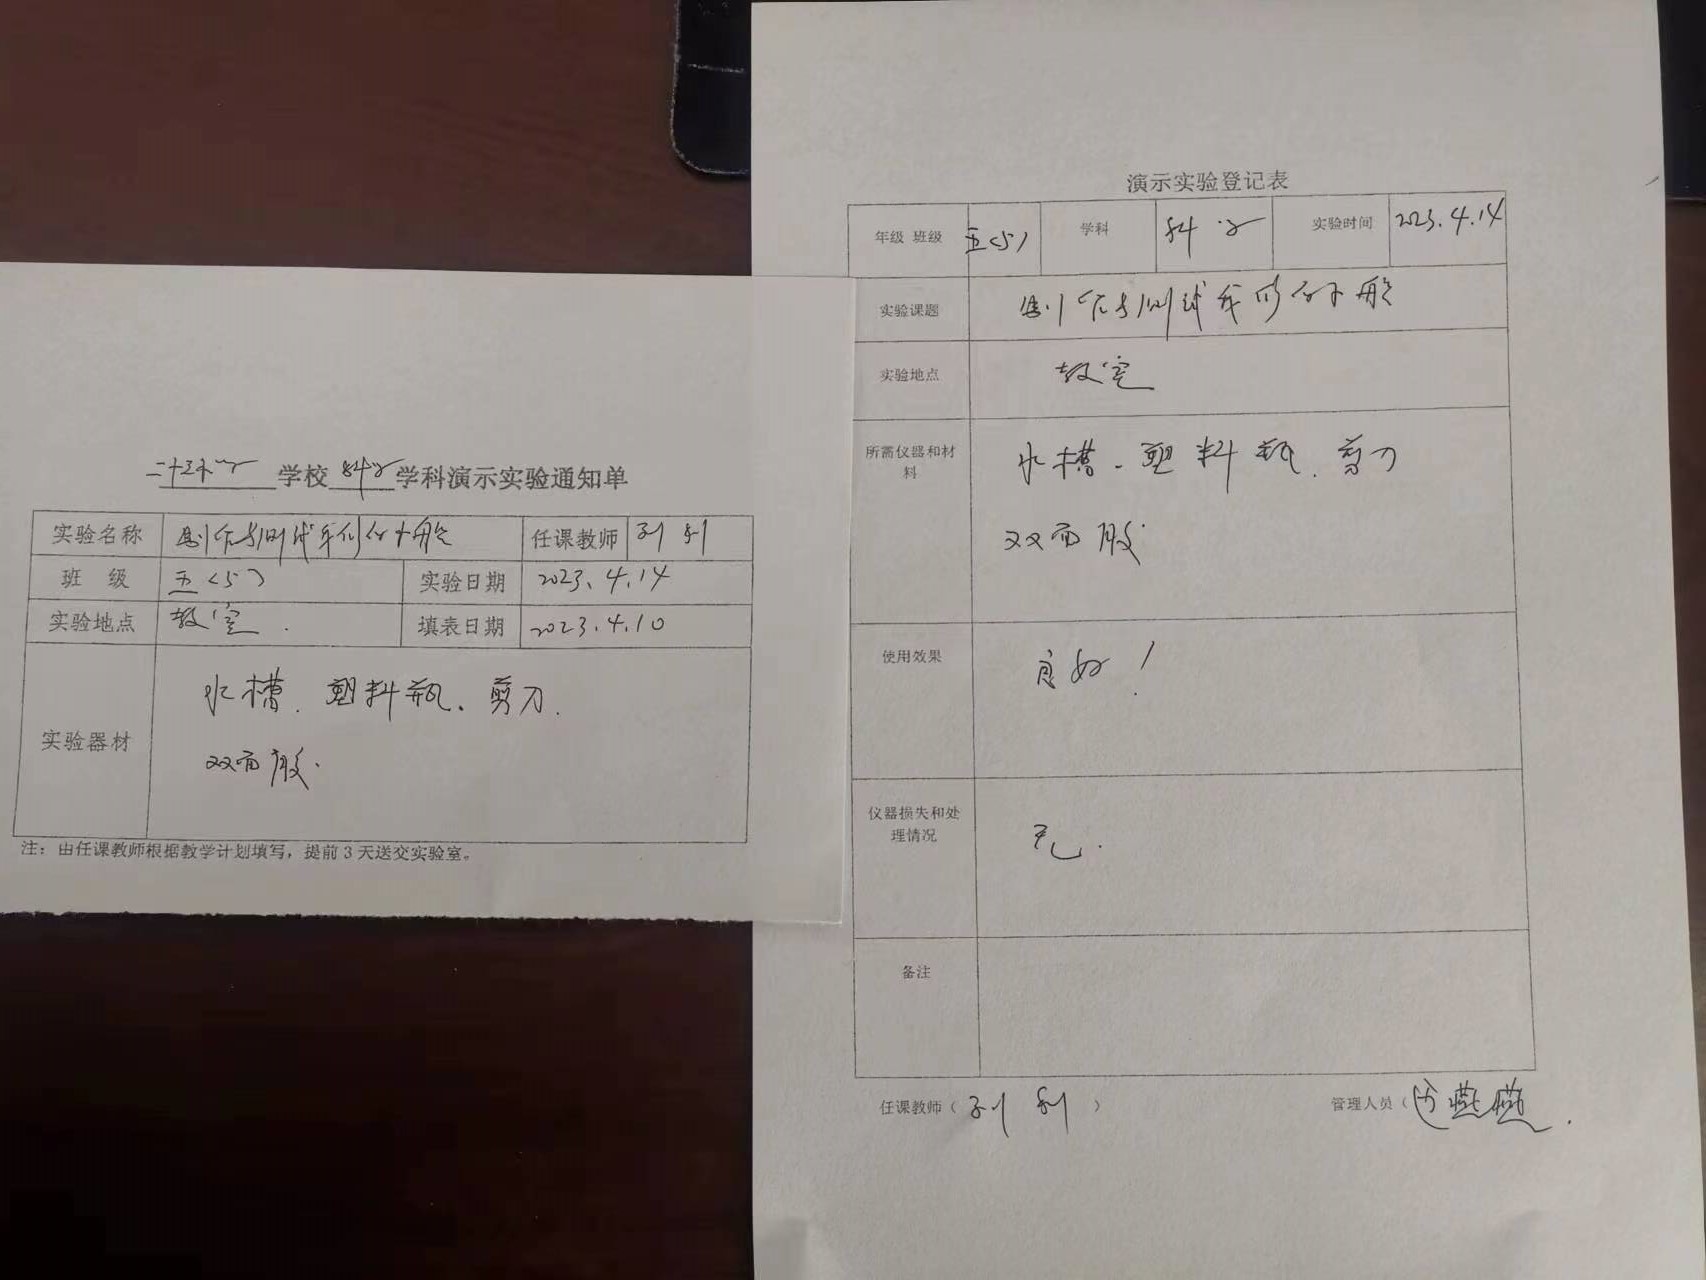 二十三小学 学校 科学 学科演示实验通知单
实验名称 制作与测试我们的小船 任课教师 刘利
班 级 五(5) 实验日期 2023.4.14
实验地点 教室. 填表日期 2023.4.10
实验器材 水槽. 塑料瓶. 剪刀.
双面胶.
注: 由任课教师根据教学计划填写，提前3天送交实验室。
演示实验登记表
年级 班级 五(5) 学科 科学 实验时间 2023.4.14
实验课题 制作与测试我们的小船
实验地点 教室
所需仪器和材料 水槽. 塑料瓶. 剪刀
双面胶
使用效果 良好!
仪器损失和处理情况 无.
备注
任课教师( 刘利 ) 管理人员( 燕燕.